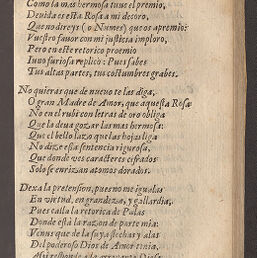 Como la mas hermosa tuue el premio,
Deuida es esta Rosa a mi decoro,
Que no direys (o Numes) que os apremio:
Vuestro fauor con mi justicia imploro,
Pero en este retorico proemio
Iuno furiosa replicò: Pues sabes
Tus altas partes, tus costumbres grabes.
No quieras que de nueuo te las diga,
O gran Madre de Amor, que aquesta Rosa
No en el rubi con letras de oro obliga
Que la deua gozar la mas hermosa:
Que el bello lazo que las hojas liga
No dize essa sentencia rigurosa,
Que donde ves caracteres cifrados
Solo se enrizan atomos dorados.
Dexa la pretension, pues no me igualas
En virtud, en grandeza, y gallardia,
Pues calla la retorica de Palas
Donde està la razon de parte mia:
Venus que de la suya flechas y alas
Del poderoso Dios de Amor tenia,